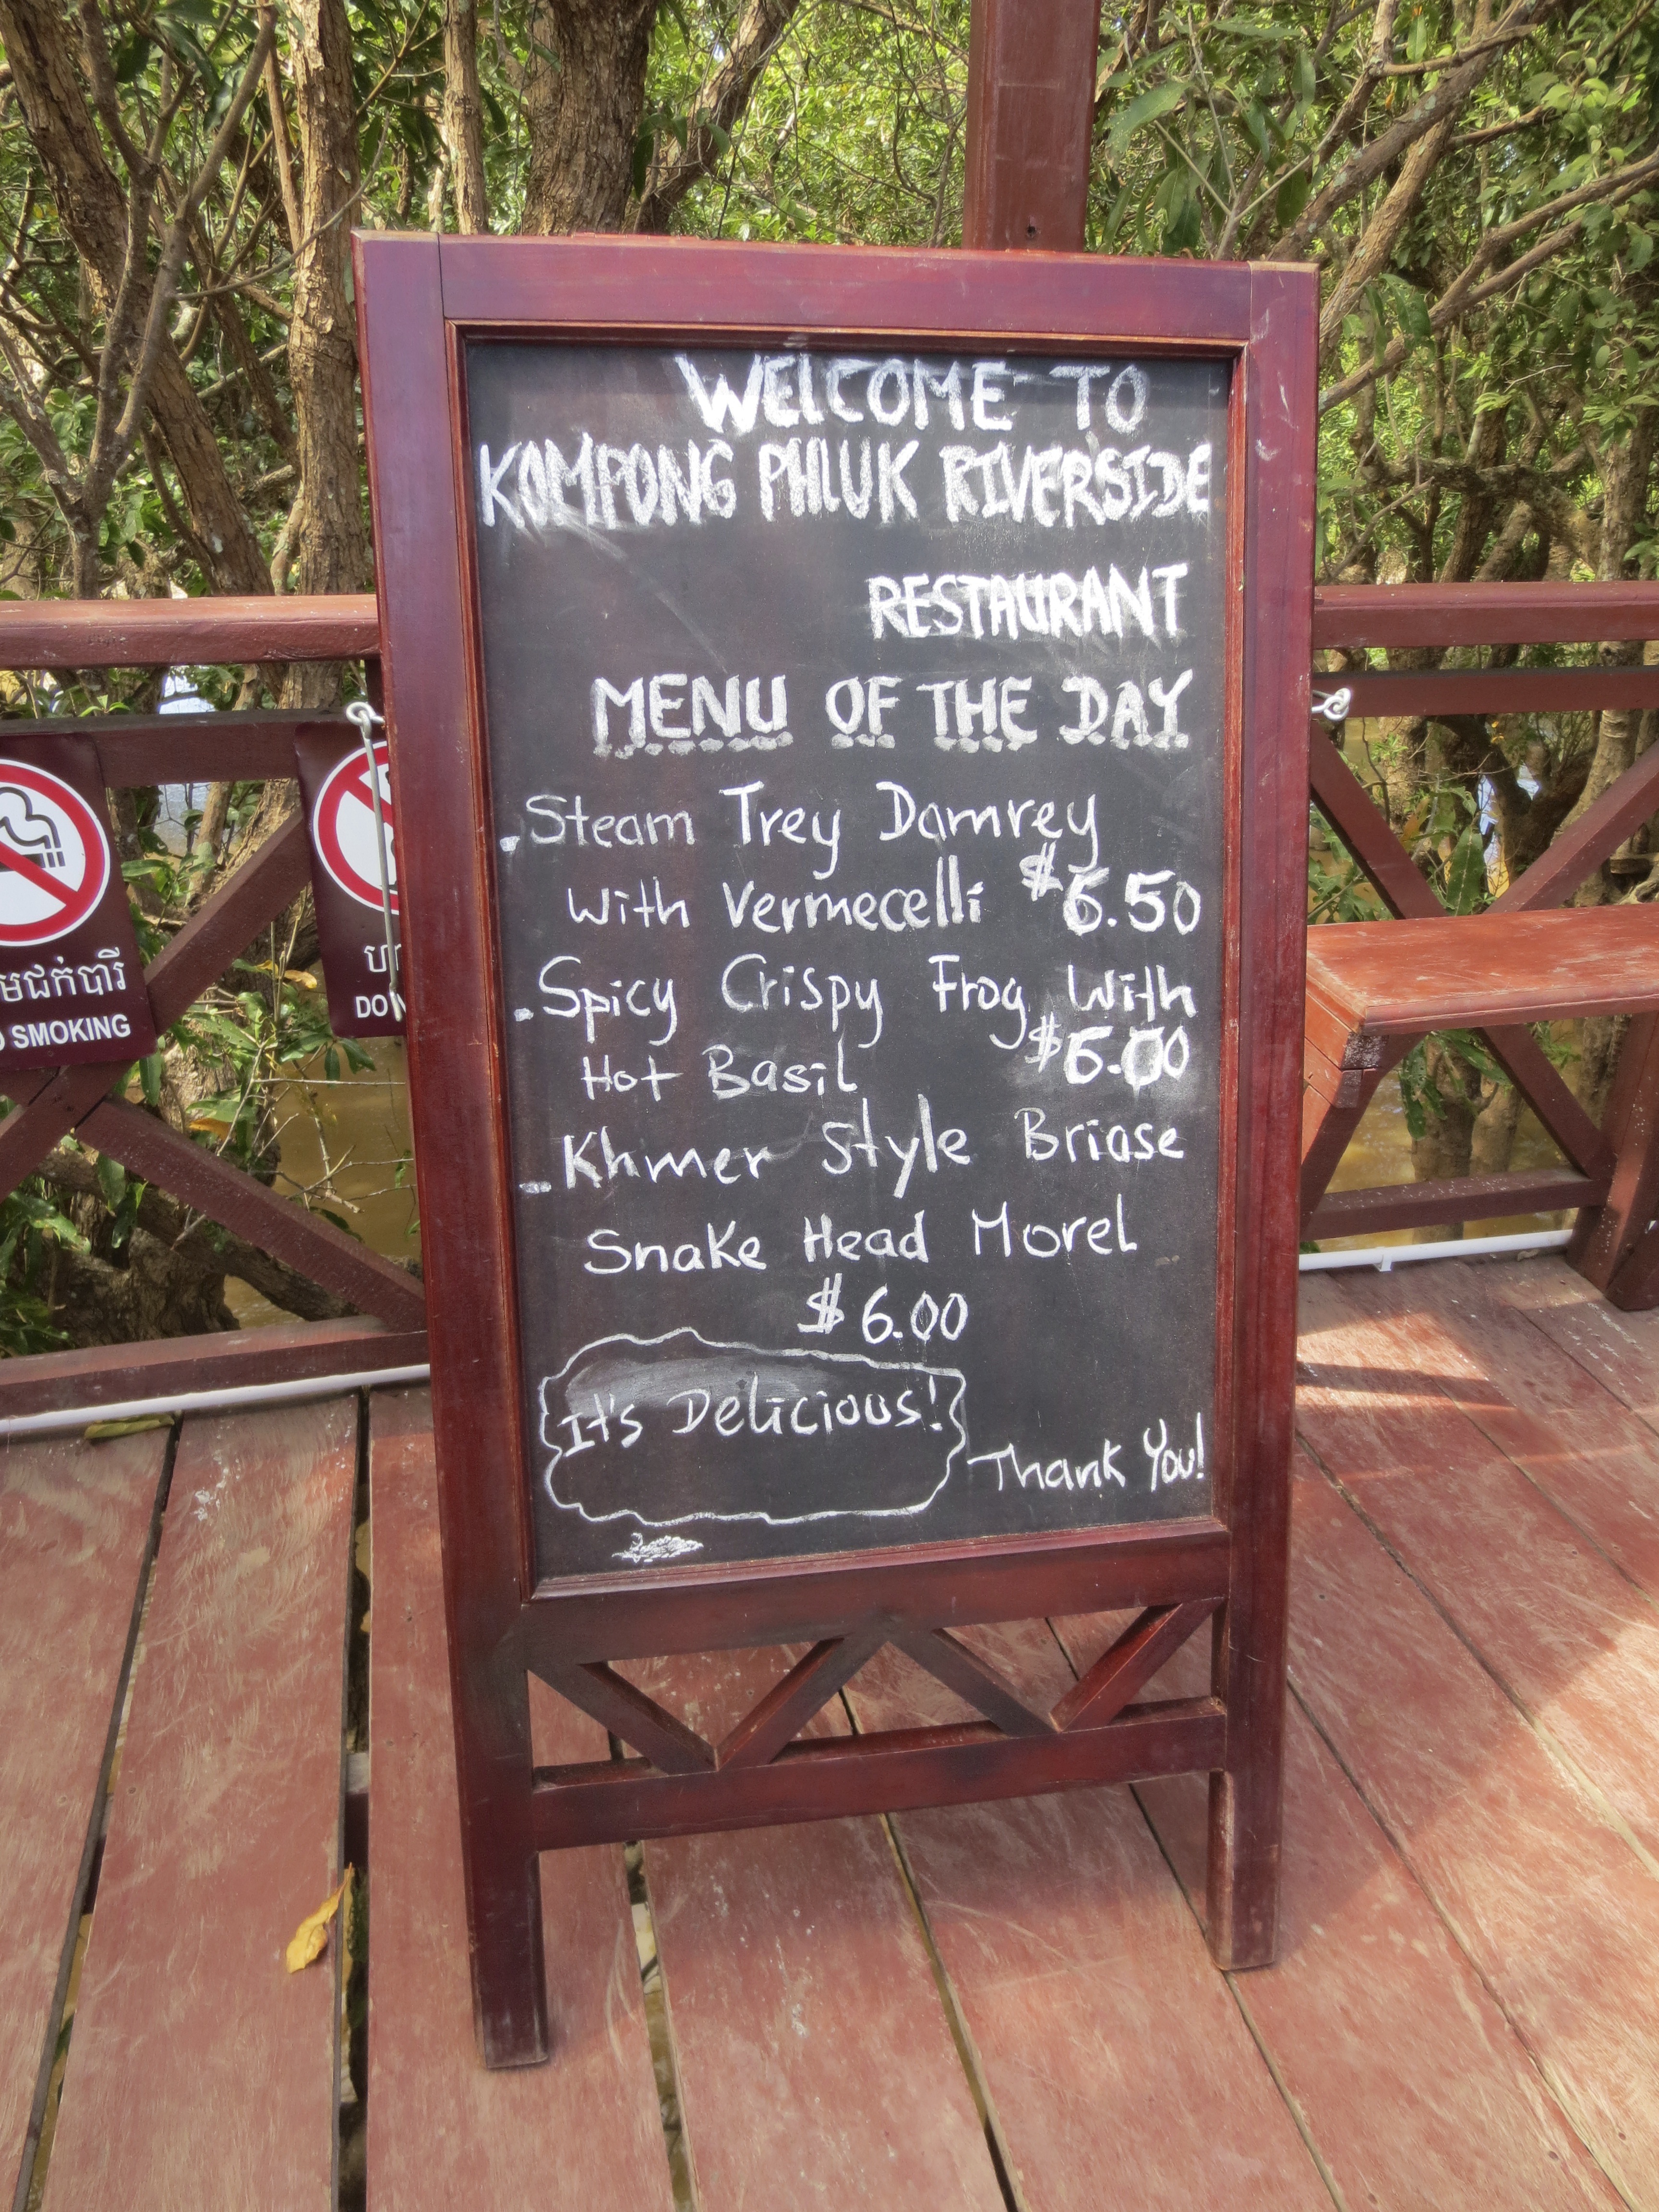 WELCOME TO
KOMPONG PHLUK RIVERSIDE
RESTAURANT
MENU OF THE DAY
.Steam Trey Damrey
With Vermecelli $6.50
.Spicy Crispy Frog With
Hot Basil $6.00
-Khmer Style Briase
Snake Head Morel
$6.00
It's Delicious!
Thank You!
SMOKING
DO